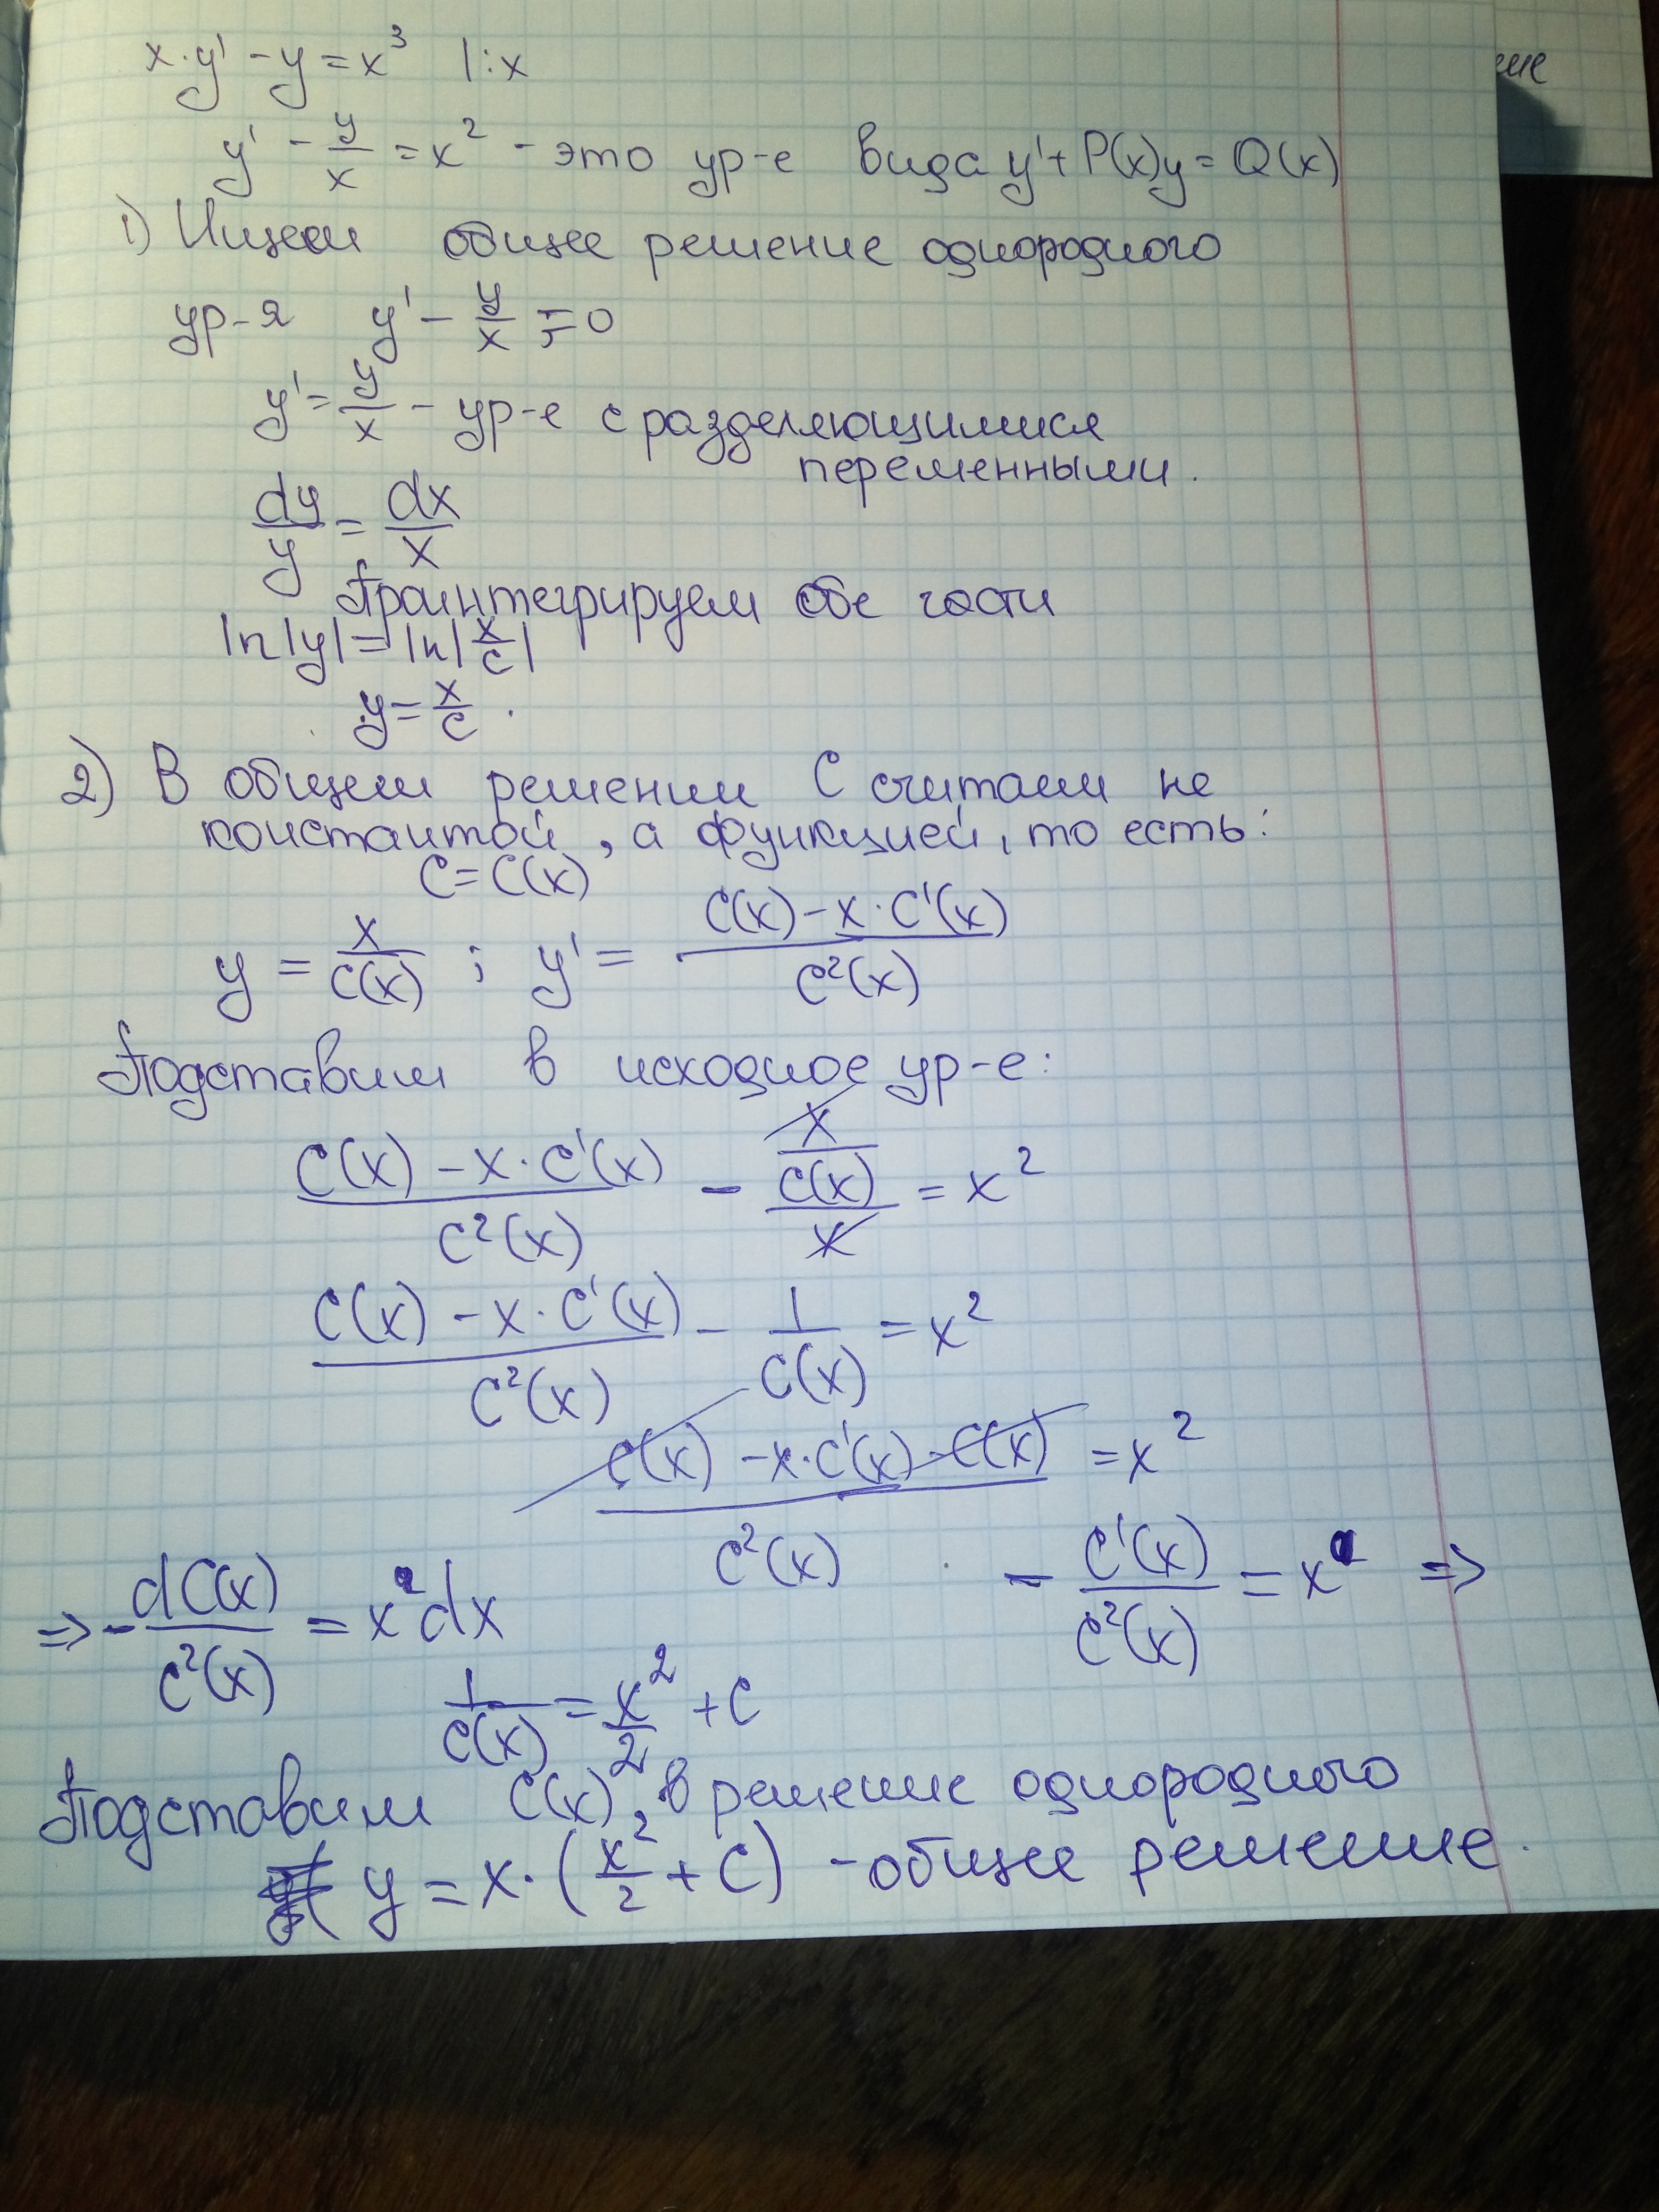 x·y' - y = x³ |:x
ше
y' - y/x = x² - это ур-е вида y' + P(x)y = Q(x)
1) Ищем общее решение однородного
ур-я y' - y/x = 0
y' = y/x - ур-е с разделяющимися
переменными.
dy/y = dx/x
Проинтегрируем обе части
ln|y| = ln|x/c|
y = x/c.
2) В общем решении C считаем не
константой, а функцией, то есть:
C = C(x)
y = x/C(x) ; y' = (C(x) - x·C'(x))/C²(x)
Подставим в исходное ур-е:
(C(x) - x·C'(x))/C²(x) - (x/C(x))/x = x²
(C(x) - x·C'(x))/C²(x) - 1/C(x) = x²
(C(x) - x·C'(x) - C(x))/C²(x) = x²
- C'(x)/C²(x) = x =>
=> - dC(x)/C²(x) = x dx
1/C(x) = x²/2 + C
Подставим C(x) в решение однородного
y = x·(x²/2 + C) - общее решение.